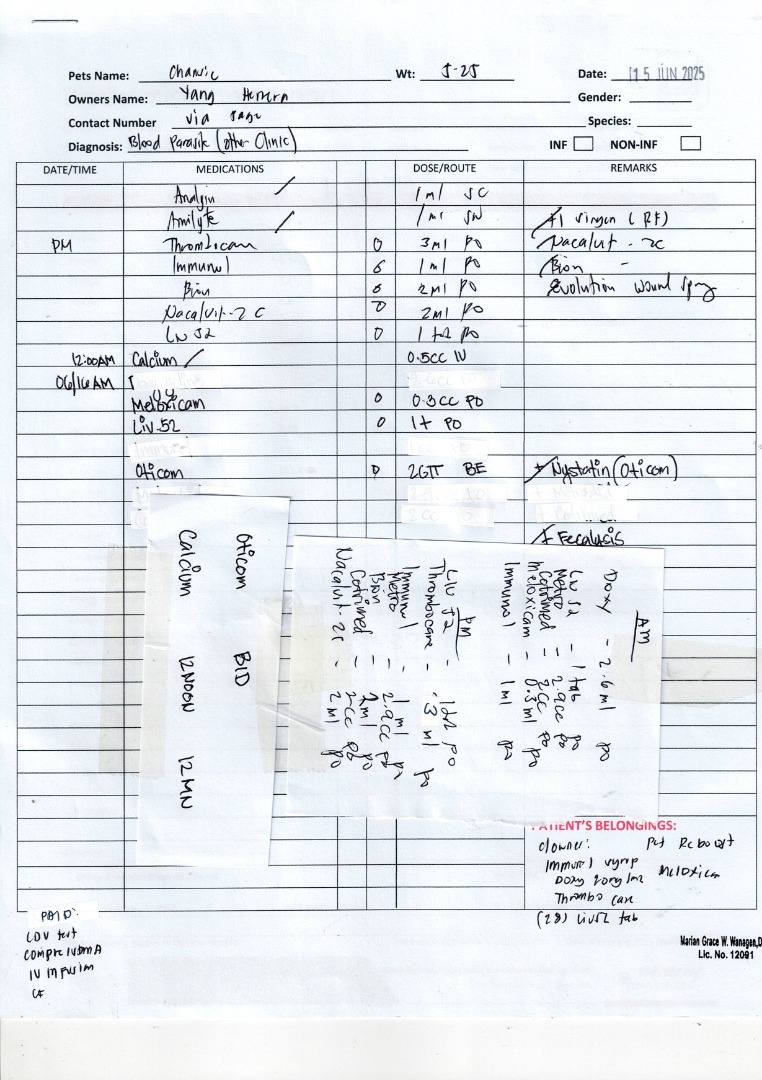 Pets Name: Wt: 5.25 Date: 15 JUN 2025
Owners Name: Yang Herrera Gender:
Contact Number via page Species:
Diagnosis: Blood Parasite (other Clinic) INF NON-INF
DATE/TIME MEDICATIONS DOSE/ROUTE REMARKS
Analgin 1 ml SC
Amilyte 1 ml +1 virgin (RF)
PM Thrombocare 0 3 ml PO Nacalvit-2c
Immunol 1 ml PO Bion -
Bion 2 ml PO Evolution wound spray
Nacalvit-2C 2 ml PO
Liv 52 0 1 tab PO
12:00AM Calcium 0.5cc IV
06/16 AM
Meloxicam 0 0.3 cc PO
Liv.52 0 1t PO
Immunol
Oticom 2GTT BE + Nystatin (Oticom)
+ Cotrimed
+ Fecalysis
Oticom BID
Calcium 12NOON 12MN
AM
Doxy - 2.6 ml po
Liv 52 - 1 tab po
Metro - 2.9cc po
Cotrimed - 2cc po
Meloxicam - 0.3 ml po
Immunol - 1 ml po
PM
Liv 52 - 1 tab po
Thrombocare - 3 ml po
Immunol - 1 ml po
Metro - 2.9cc po
Bion - 2 ml po
Cotrimed - 2cc po
Nacalvit-2c - 2 ml po
PATIENT'S BELONGINGS:
c/owner: Pet Reboost
Immunol syrup Meloxicam
Doxy 20mg/ml
Thrombo care
(28) Liv52 tab
PAID:
CDV test
IV infusion
CF
Marian Grace W. Wanagen, D
Lic. No. 12091